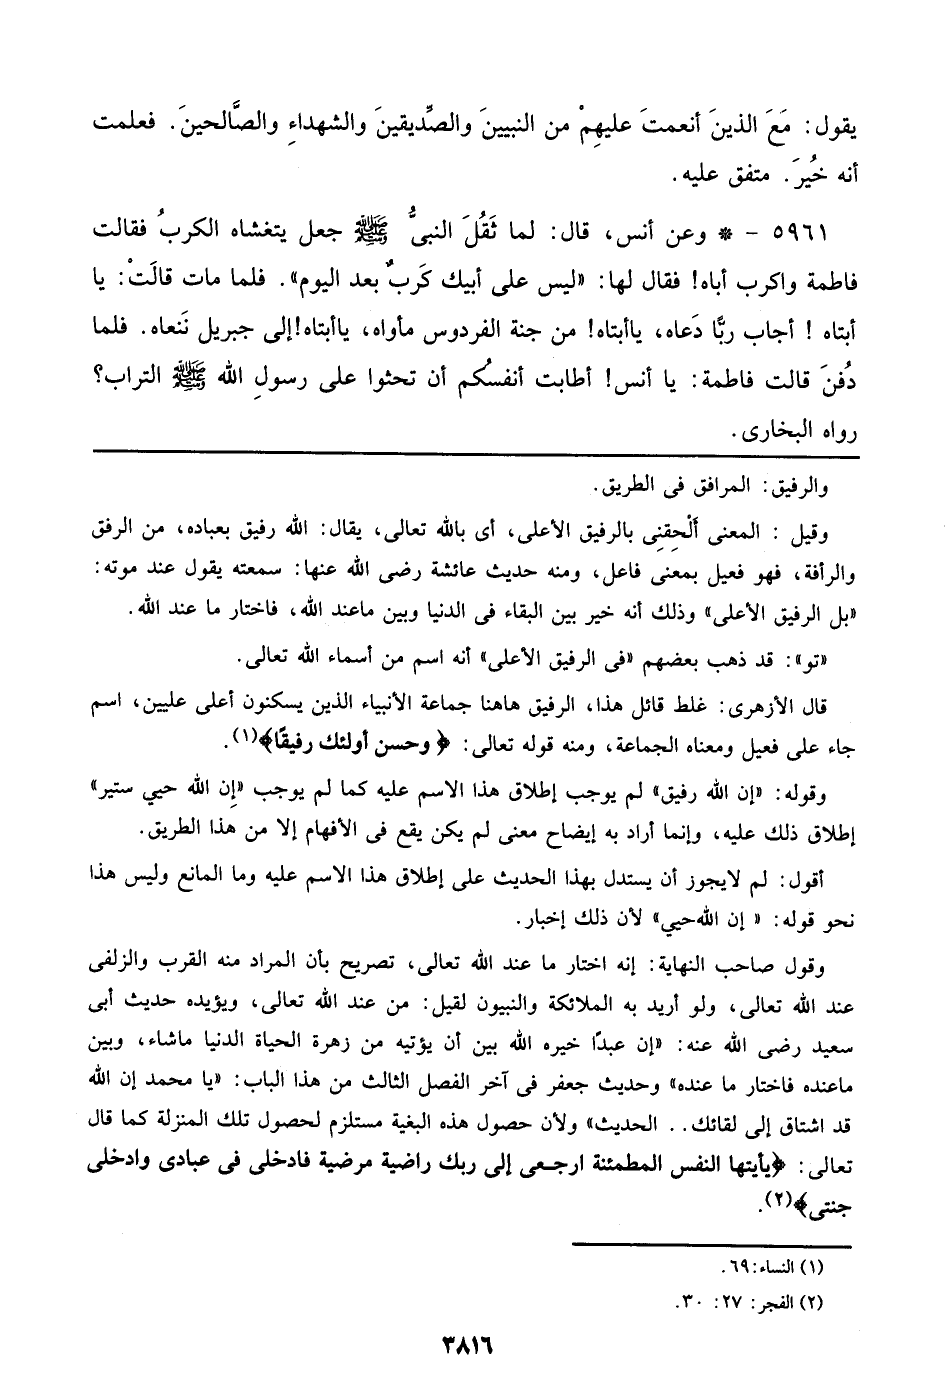 يقول: مَعَ الذينَ أنعمتَ عليهِمْ من النبيينَ والصِّديقينَ والشهداءِ والصَّالحينَ. فعلمت
أنه خُيرَ. متفق عليه.
٥٩٦١ - * وعن أنس، قال: لما ثَقُلَ النبىُّ ﷺ جعل يتغشاه الكربُ فقالت
فاطمة واكرب أباه! فقال لها: «ليس على أبيك كَربٌ بعد اليوم». فلما مات قالَتْ: يا
أبتاه ! أجاب ربًّا دَعاه، ياأبتاه! من جنة الفردوس مأواه، ياأبتاه!إلى جبريل نَنعاه. فلما
دُفنَ قالت فاطمة: يا أنس! أطابت أنفسُكم أن تحثوا على رسولِ الله ﷺ التراب؟
رواه البخارى.
والرفيق: المرافق فى الطريق.
وقيل : المعنى أَلْحِقِنِى بالرفيق الأعلى، أى بالله تعالى، يقال: الله رفيق بعباده، من الرفق
والرأفة، فهو فعيل بمعنى فاعل، ومنه حديث عائشة رضى الله عنها: سمعته يقول عند موته:
«بل الرفيق الأعلى» وذلك أنه خير بين البقاء فى الدنيا وبين ماعند الله، فاختار ما عند الله.
«تو»: قد ذهب بعضهم «فى الرفيق الأعلى» أنه اسم من أسماء الله تعالى.
قال الأزهرى: غلط قائل هذا، الرفيق هاهنا جماعة الأنبياء الذين يسكنون أعلى عليين، اسم
جاء على فعيل ومعناه الجماعة، ومنه قوله تعالى: ﴿ وحسن أولئك رفيقًا﴾(١).
وقوله: «إن الله رفيق» لم يوجب إطلاق هذا الاسم عليه كما لم يوجب «إن الله حيي ستير»
إطلاق ذلك عليه، وإنما أراد به إيضاح معنى لم يكن يقع فى الأفهام إلا من هذا الطريق.
أقول: لم لايجوز أن يستدل بهذا الحديث على إطلاق هذا الاسم عليه وما المانع وليس هذا
نحو قوله: « إن اللهحيي» لأن ذلك إخبار.
وقول صاحب النهاية: إنه اختار ما عند الله تعالى، تصريح بأن المراد منه القرب والزلفى
عند الله تعالى، ولو أريد به الملائكة والنبيون لقيل: من عند الله تعالى، ويؤيده حديث أبى
سعيد رضى الله عنه: «إن عبدًا خيره الله بين أن يؤتيه من زهرة الحياة الدنيا ماشاء، وبين
ماعنده فاختار ما عنده» وحديث جعفر فى آخر الفصل الثالث من هذا الباب: «يا محمد إن الله
قد اشتاق إلى لقائك. . الحديث» ولأن حصول هذه البغية مستلزم لحصول تلك المنزلة كما قال
تعالى: ﴿يأيتها النفس المطمئنة ارجعى إلى ربك راضية مرضية فادخلى فى عبادى وادخلى
جنتى﴾(٢).
(١) النساء:٦٩.
(٢) الفجر: ٢٧: ٣٠.
٣٨١٦